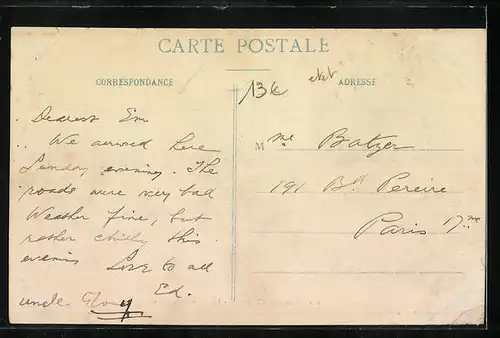 CARTE POSTALE
CORRESPONDANCE
ADRESSE
13€
Dearest Em
We arrived here
Sunday evening. The
roads were very bad
Weather fine, but
rather chilly this
evening Love to all
Ed.
uncle
Mme Batzer
191 Bd Pereire
Paris 17me